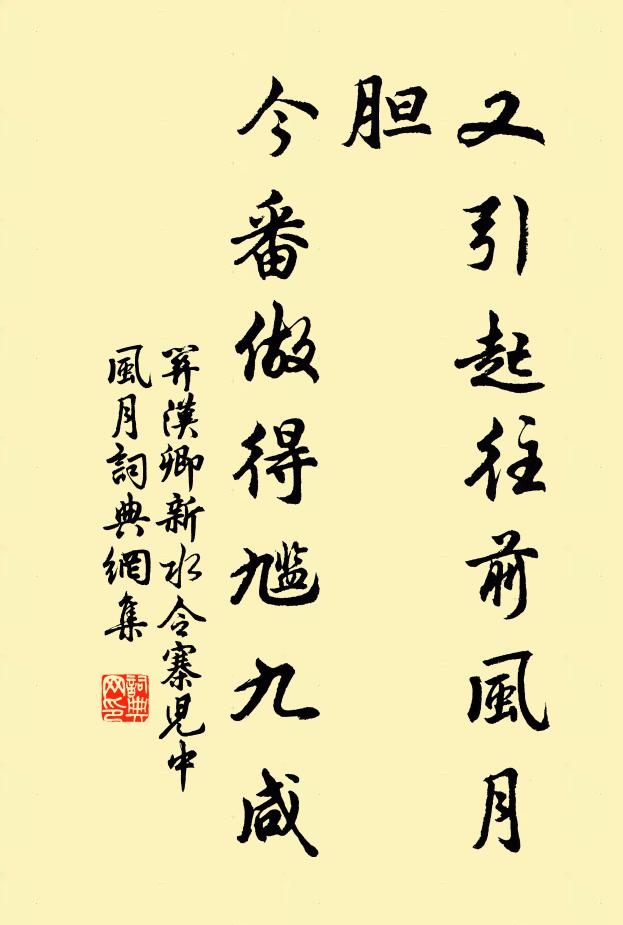 又引起往前風月
胆
今番做得尴九咸
關漢卿新水令寨兒中
風月詞典網集
詞典网印